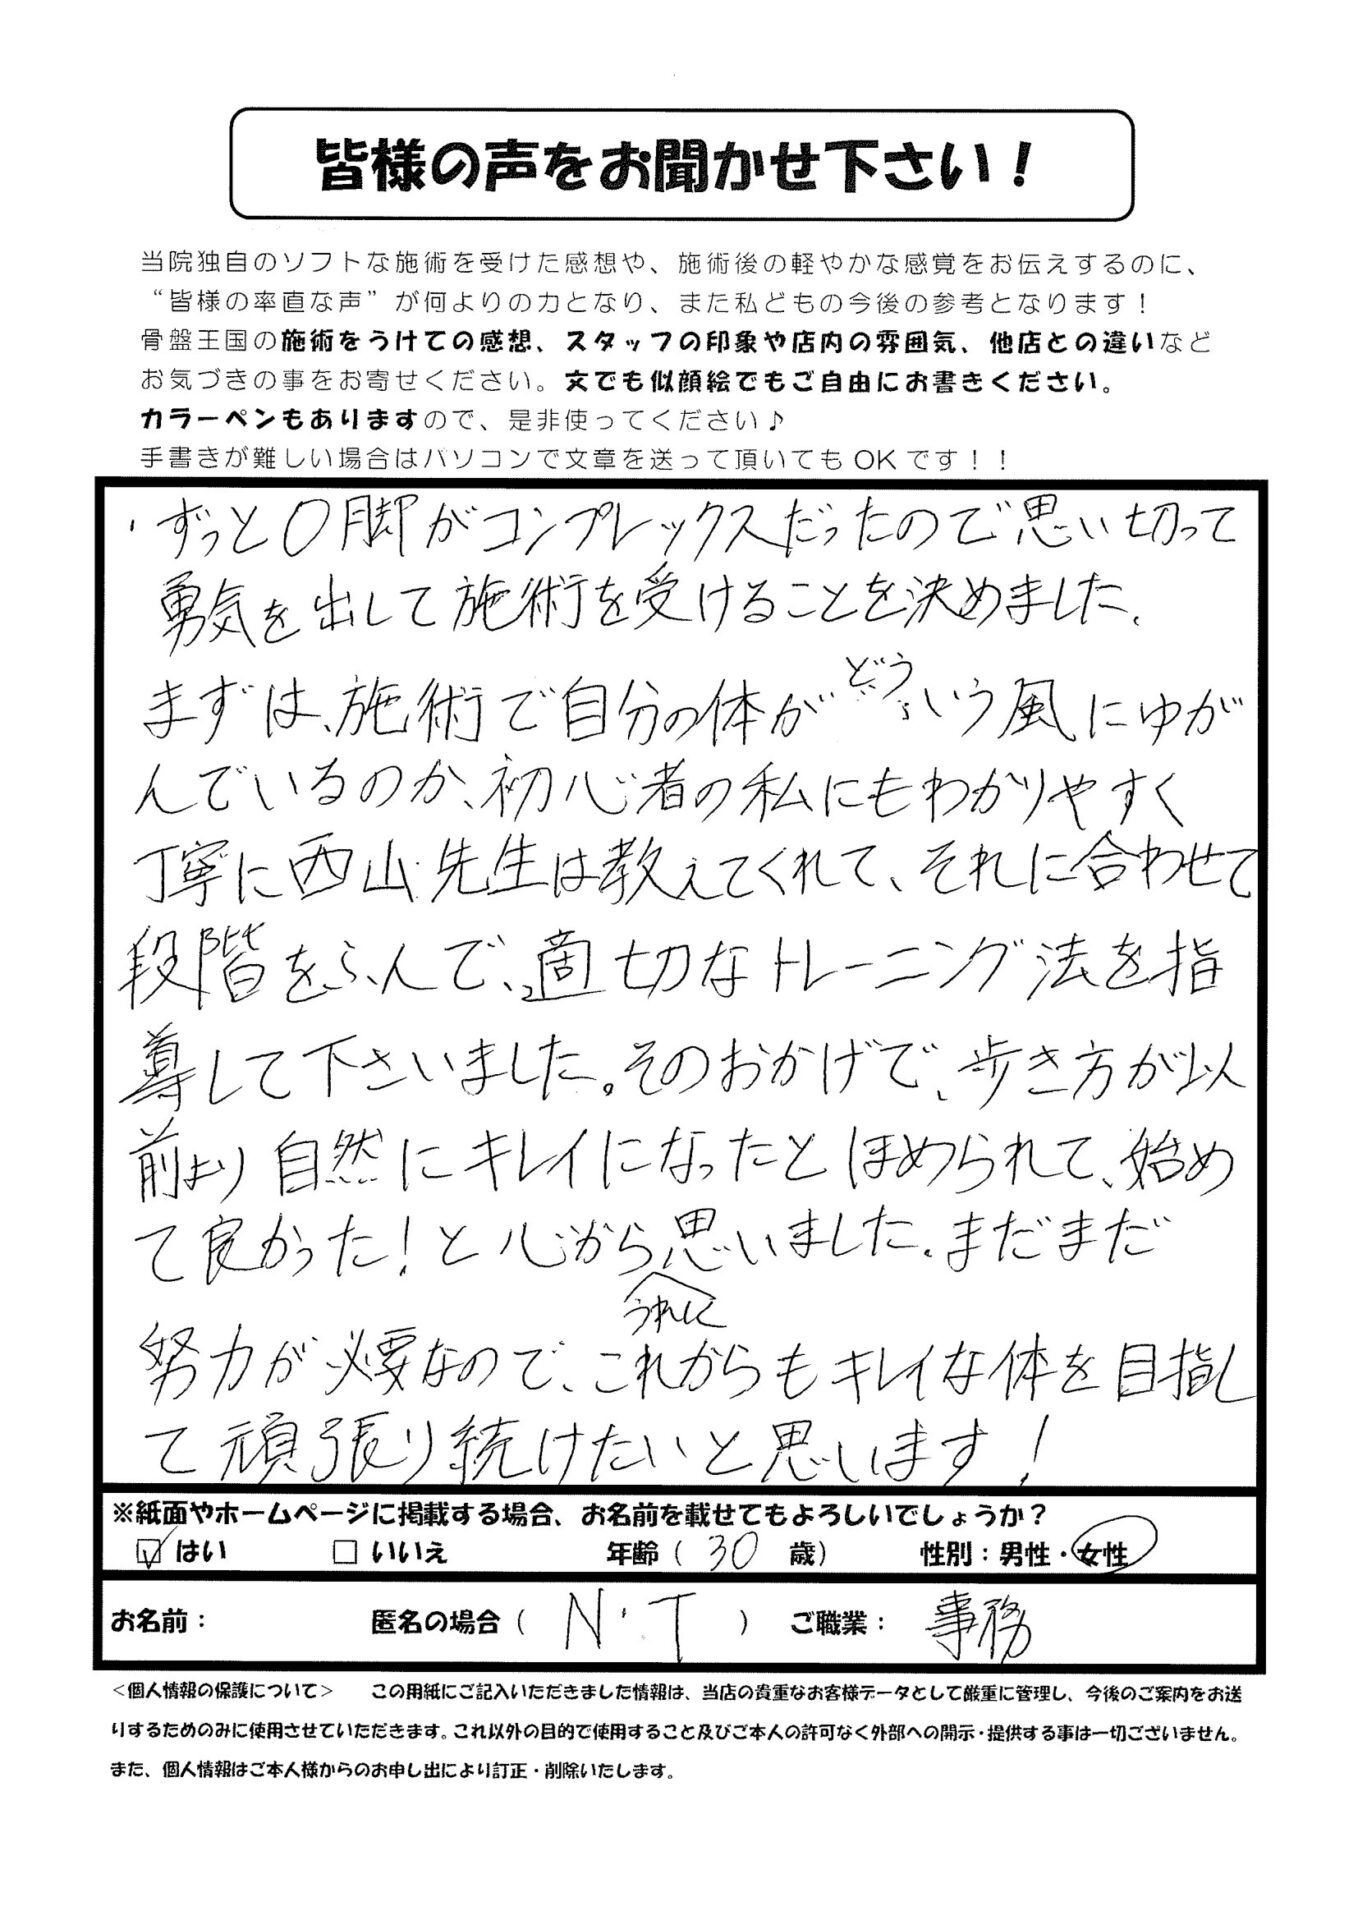 皆様の声をお聞かせ下さい！
当院独自のソフトな施術を受けた感想や、施術後の軽やかな感覚をお伝えするのに、
“皆様の率直な声”が何よりの力となり、また私どもの今後の参考となります！
骨盤王国の施術をうけての感想、スタッフの印象や店内の雰囲気、他店との違いなど
お気づきの事をお寄せください。文でも似顔絵でもご自由にお書きください。
カラーペンもありますので、是非使ってください♪
手書きが難しい場合はパソコンで文章を送って頂いてもOKです！！
・ずっとO脚がコンプレックスだったので思い切って
勇気を出して施術を受けることを決めました。
まずは、施術で自分の体がどういう風にゆが
んでいるのか、初心者の私にもわかりやすく
丁寧に西山先生は教えてくれて、それに合わせて
段階をふんで、適切なトレーニング法を指
導して下さいました。そのおかげで、歩き方が以
前より自然にキレイになったとほめられて、始め
て良かった！と心から思いました。まだまだ
うれしく
努力が必要なので、これからもキレイな体を目指し
て頑張り続けたいと思います！
※紙面やホームページに掲載する場合、お名前を載せてもよろしいでしょうか？
☑ はい □ いいえ 年齢（ 30 歳） 性別：男性・女性
お名前： 匿名の場合（ N・T ） ご職業： 事務
＜個人情報の保護について＞ この用紙にご記入いただきました情報は、当店の貴重なお客様データとして厳重に管理し、今後のご案内をお送
りするためのみに使用させていただきます。これ以外の目的で使用すること及びご本人の許可なく外部への開示・提供する事は一切ございません。
また、個人情報はご本人様からのお申し出により訂正・削除いたします。